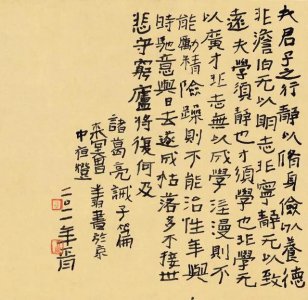 夫君子之行静以脩身儉以養德
非澹泊无以明志非寧静无以致
遠夫學須静也才須學也非學无
以廣才非志无以成學淫漫則不
能勵精險躁則不能治性年與
時馳意與日去遂成枯落多不接世
悲守窮廬將復何及
諸葛亮誡子篇
堂曾書於京
中
二〇一一年